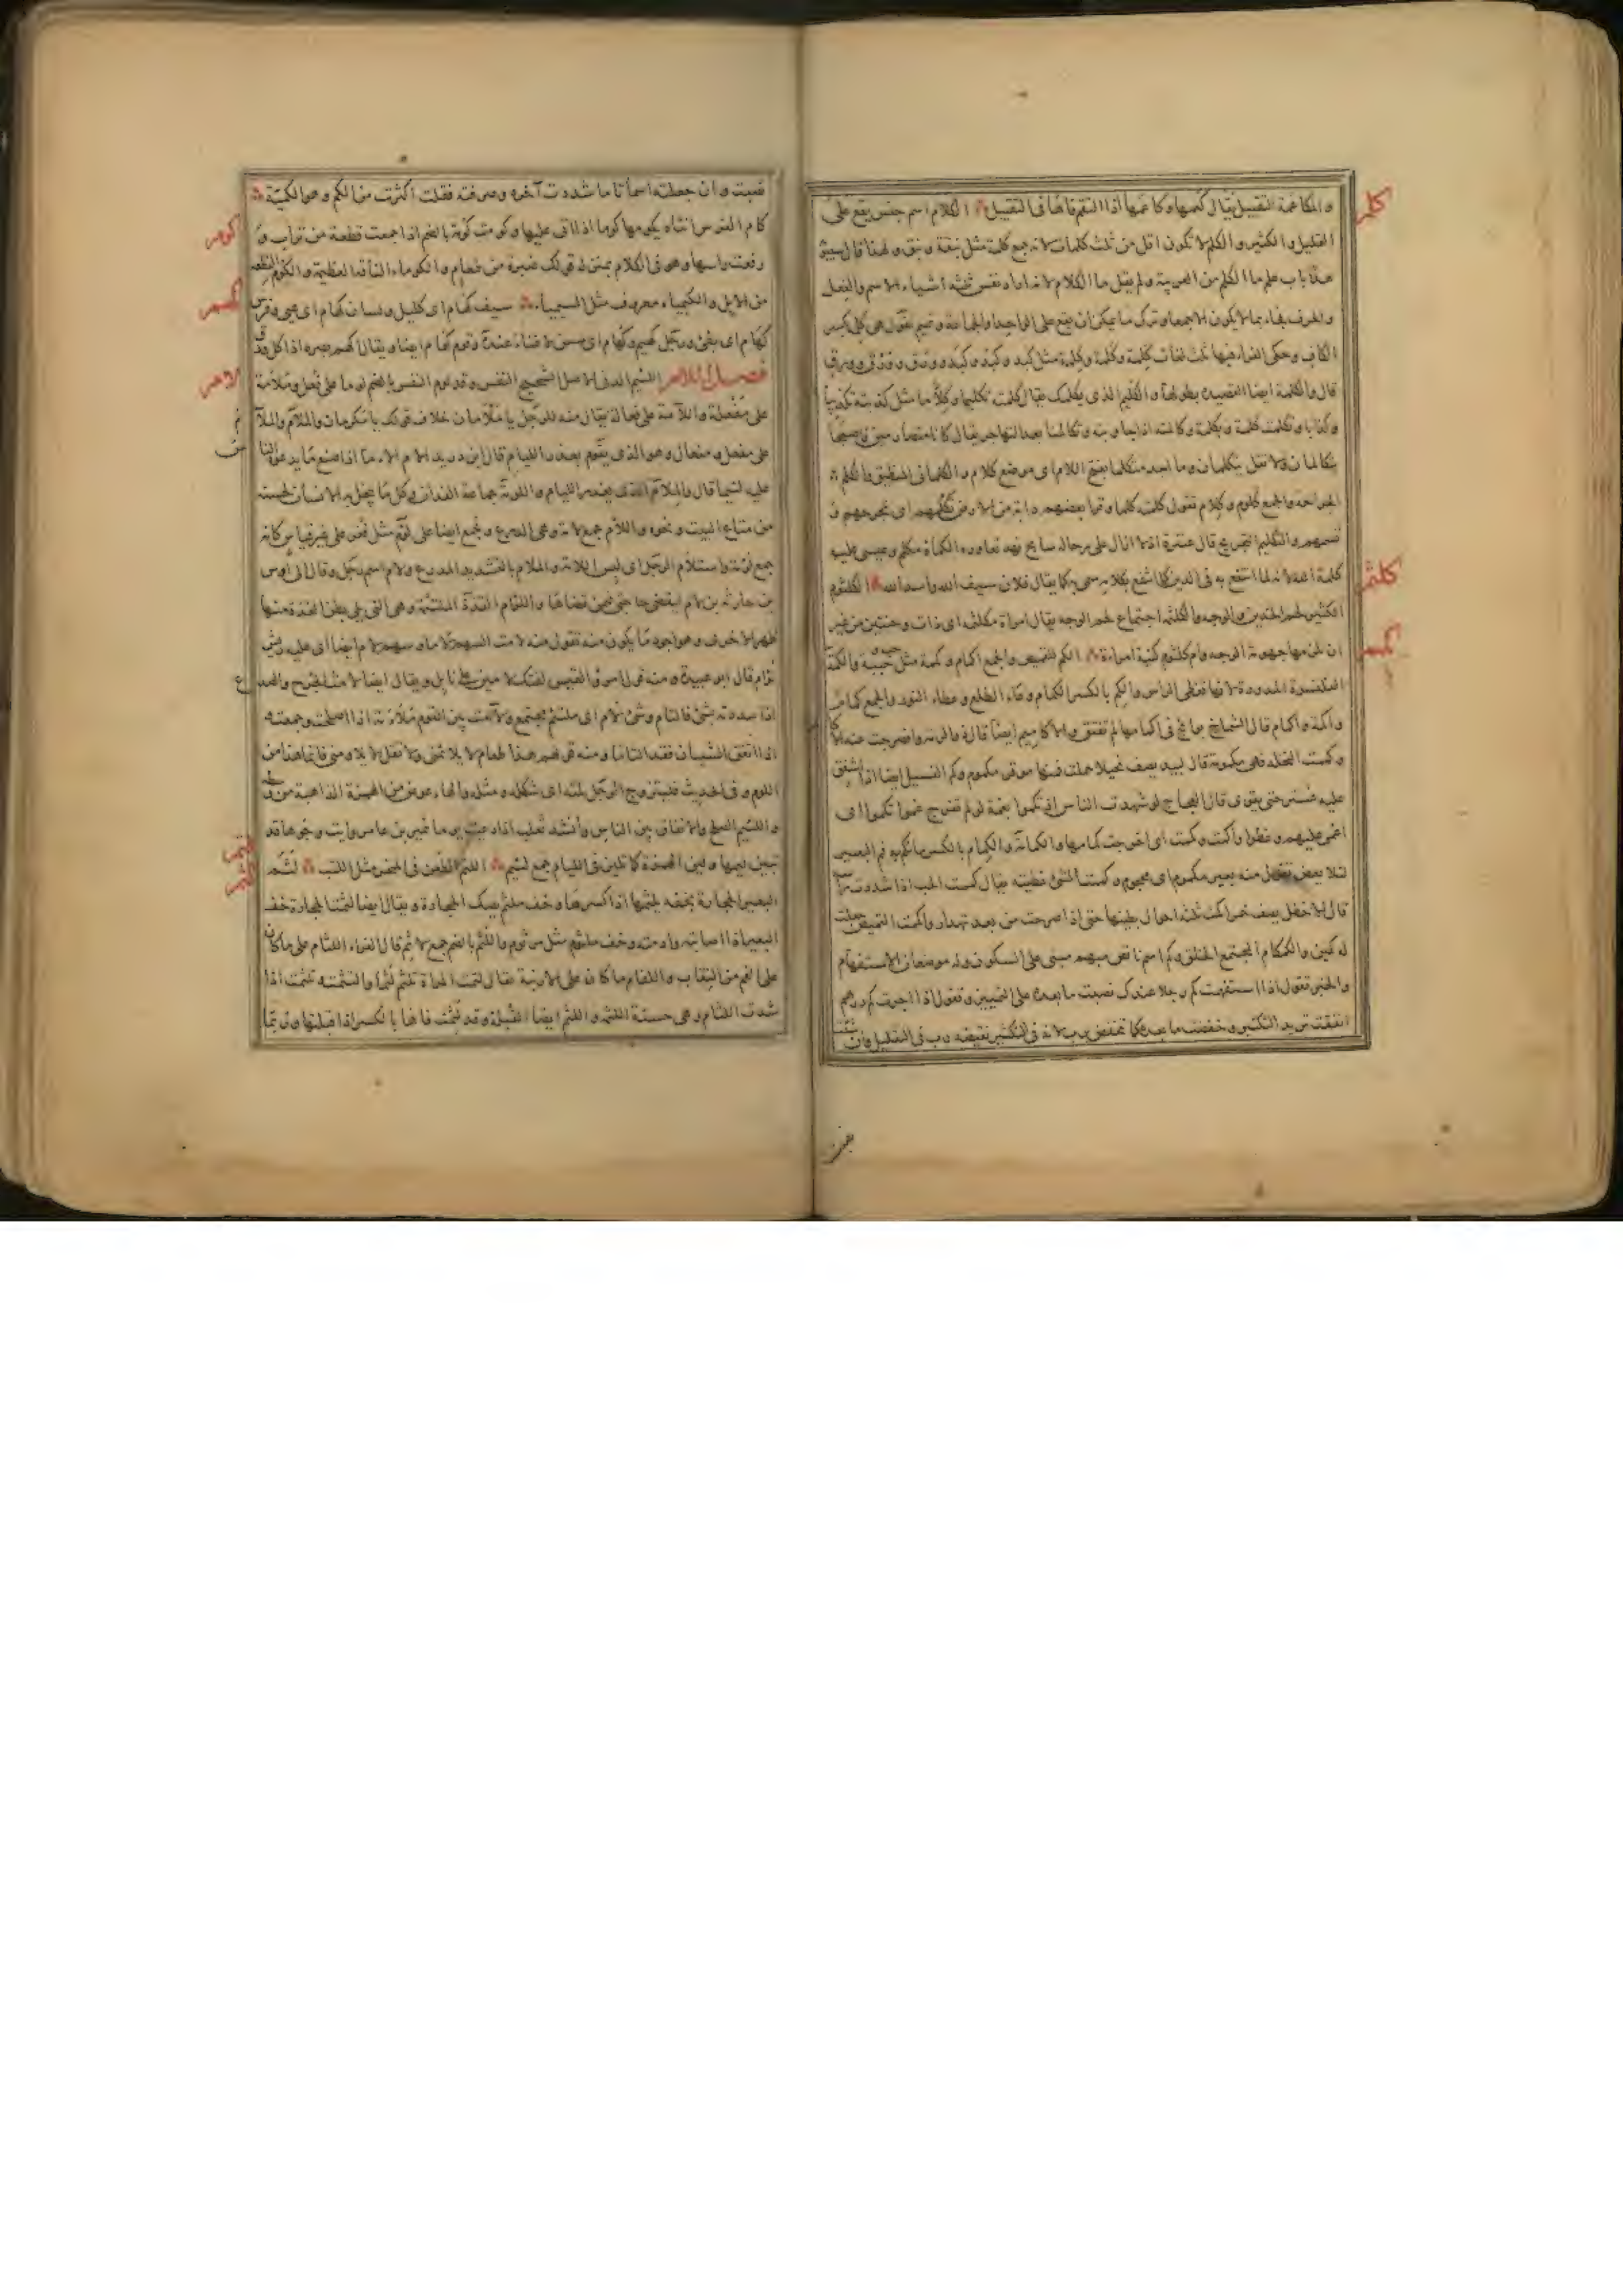 كلم
والمكاعمة التقبيل يقال كعمها وكاعمها اذا التقم فاها فى التقبيل الكلام اسم جنس يقع على
القليل والكثير والكلم لا تكون اقل من ثلث كلمات لانه جمع كلمة مثل نبقة ونبق ولهذا قال سيبويه
هذا باب علم ما الكلم من العربية ولم يقل ما الكلام لانه اراد نفس ثلثة أشياء الاسم والفعل
والحرف فجاء بما لا يكون الا جمعا وترك ما يمكن ان يقع على الواحد والجماعة وتميم تقول هى كلمة بكسر
الكاف وحكى الفراء فيها ثلث لغات كلمة وكلمة وكلمة مثل كبد وكبد وكبد وورق وورق وورق
قال والكلمة ايضا القصيدة بطولها والكليم الذى يكلمك يقال كلمته تكليما وكلاما مثل كذبته تكذيبا
وكذابا وتكلمت كلمة وبكلمة وكالمته اذا جاوبته وتكالمنا بعد التهاجر يقال كانا متصارمين فاصبحا
يتكالمان ولا تقل يتكلمان وما اجد متكلما بفتح اللام اى موضع كلام والكلمانى المنطيق والكلم
الجراحة والجمع كلوم وكلام تقول كلمته كلما وقرا بعضهم دابة من الارض تكلمهم اى تجرحهم و
تسمهم والتكليم التجريح قال عنترة اذ لا ازال على رحالة سابح نهد تعاوره الكماة مكلم وعيسى عليه
كلمة الله لانه لما انتفع به فى الدين كما انتفع بكلامه سمى به كما يقال فلان سيف الله واسد الله الكلثوم
كلثم
الكثير لحم الخدين والوجه والكلثمة اجتماع لحم الوجه يقال امراة مكلثمة اى ذات وجنتين من غير
ان تلزمها جهومة الوجه وام كلثوم كنية امراة الكم للقميص والجمع اكمام وكممة مثل حب وحببة والكمة
كمم
القلنسوة المدورة لانها تغطى الراس والكم بالكسر والكمام وعاء الطلع وغطاء النور والجمع كمام
واكمة واكمام قال الشماخ بوائج فى اكمامها لم تفتق والاكاميم ايضا قال ذو الرمة وانضرجت عنه الا
وكمت النخلة فهى مكمومة قال لبيد يصف نخيلا حملت فمنها موقر مكموم وكم الفسيل ايضا اذا اشفق
عليه فستر حتى يقوى قال العجاج لو شهدت الناس اذ تكموا بغمة لو لم تفرج غموا تكموا اى
اغمى عليهم وغطوا واكمت وكممت اى اخرجت كمامها والكمامة والكمام بالكسر ما يكم به فم البعير
لئلا يعض تقول منه بعير مكموم اى محجوم وكممت الشئ غطيته يقال كممت الحب اذا شددت راسه
قال الاخطل يصف خمرا كمت ثلثة احوال بطينها حتى اذا صرحت من بعد تهدار واكممت القميص جعلت
له كمين والكمكام المجتمع الخلق وكم اسم ناقص مبهم مبنى على السكون وله موضعان الاستفهام
والخبر تقول اذا استفهمت كم رجلا عندك نصبت ما بعده على التمييز وتقول اذا اخبرت كم درهم
انفقت تريد التكثير وخفضت ما بعده كما تخفض برب لانه فى التكثير نقيضه رب فى التقليل وان شئت
نصبت وان جعلته اسما تاما شددت آخره وصرفته فقلت اكثرت من الكم وهو الكمية
كوم
كام الفرس انثاه يكومها كوما اذا نزا عليها وكومت كومة بالضم اذا جمعت قطعة من تراب و
رفعت راسها وهو فى الكلام بمنزلة قولك صبرة من طعام والكوماء الناقة العظيمة والكوم القطعة
من الابل والكيمياء معروف مثل السيمياء سيف كهام اى كليل ولسان كهام اى عيى وفرس
كهم
كهام اى بطئ ورجل كهيم وكهام اى مسن لا غناء عنده وقوم كهام ايضا ويقال اكهم بصره اذا كل ورق
فصل اللام اللئيم الدنى الاصل الشحيح النفس وقد لوم الرجل بالضم لوما على فعل وملأمة
لام
على مفعلة واللآمة على فعالة يقال منه للرجل يا ملأمان خلاف قولك يا مكرمان والملأم والملآم
على مفعل ومفعال وهو الذى يقوم بعذر اللئام قال ابن دريد الام الاءما اذا صنع ما يدعوه الناس
عليه لئيما قال والملأم الذى يعذر اللئام واللومة جماعة الفدان وكل ما يبخل به الانسان لحسنه
من متاع البيت ونحوه واللأم جمع لأمة وهى الدرع وتجمع ايضا على لؤم مثل نغر على غير قياس كانه
جمع لؤمة واستلأم الرجل اى لبس اللأمة والملأم بالتشديد المدرع ولام اسم رجل وقال الى اوس
بن حارثة بن لام ليقضى حاجتى فيمن قضاها واللؤام القذة الملتئمة وهى التى يلى بطن القذة منها
ظهر الاخرى وهو اجود ما يكون منه تقول منه لأمت السهم لأما وسهم لأم ايضا اى عليه ريش
لؤام قال ابو عبيدة ومنه قول امرؤ القيس لفتك لأمين على نابل ويقال ايضا لأمت الجرح والصدع
اذا سددته بشئ فالتام وشئ لأم اى ملتئم مجتمع ولاءمت بين القوم ملاءمة اذا اصلحت وجمعت
اذا اتفق الشيئان فقد التاما ومنه قولهم هذا طعام لا يلائمنى ولا تقل لا يلاومنى فانما هذا من
اللوم وفى الحديث فليتزوج الرجل لمته اى شكله ومثله والهاء عوض من الهمزة الذاهبة من وسطه
واللئم الصلح والاتفاق بين الناس وأنشد ثعلب اذا دعيت يوما نمير بن عامر رأيت وجوها قد
تبين ليمها ولين الهمزة كما تلين فى اللئام جمع لئيم اللتم الطعن فى النحر مثل اللتب لثم
لتم
لثم
البعير الحجارة بخفه يلثمها اذا كسرها وخف ملثم يصك الحجارة ويقال ايضا لثمت الحجارة خف
البعير اذا اصابته وادمته وخف ملثوم مثل مرثوم واللثم بالضم جمع لاثم قال الفراء اللثام على ما كان
على الفم من النقاب واللفام ما كان على الارنبة يقال لثمت المراة تلثم لثما والتثمت وتلثمت اذا
شدت اللثام وهى حسنة اللثمة واللثم ايضا القبلة وقد لثمت فاها بالكسر اذا قبلتها وربما